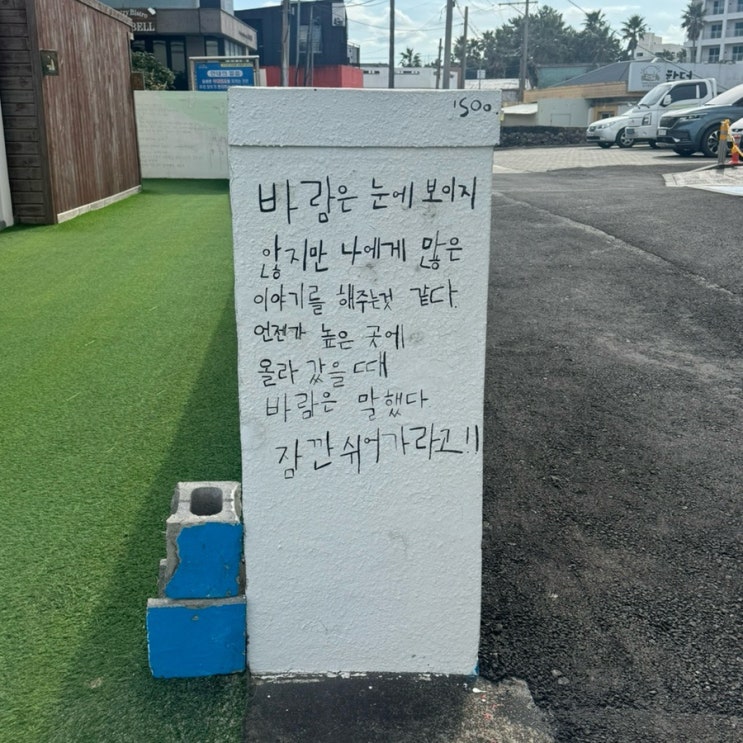 BELL
'SOO.
바람은 눈에 보이지
않지만 나에게 많은
이야기를 해주는것 같다.
언젠가 높은 곳에
올라 갔을 때
바람은 말했다
잠깐 쉬어가라고!!